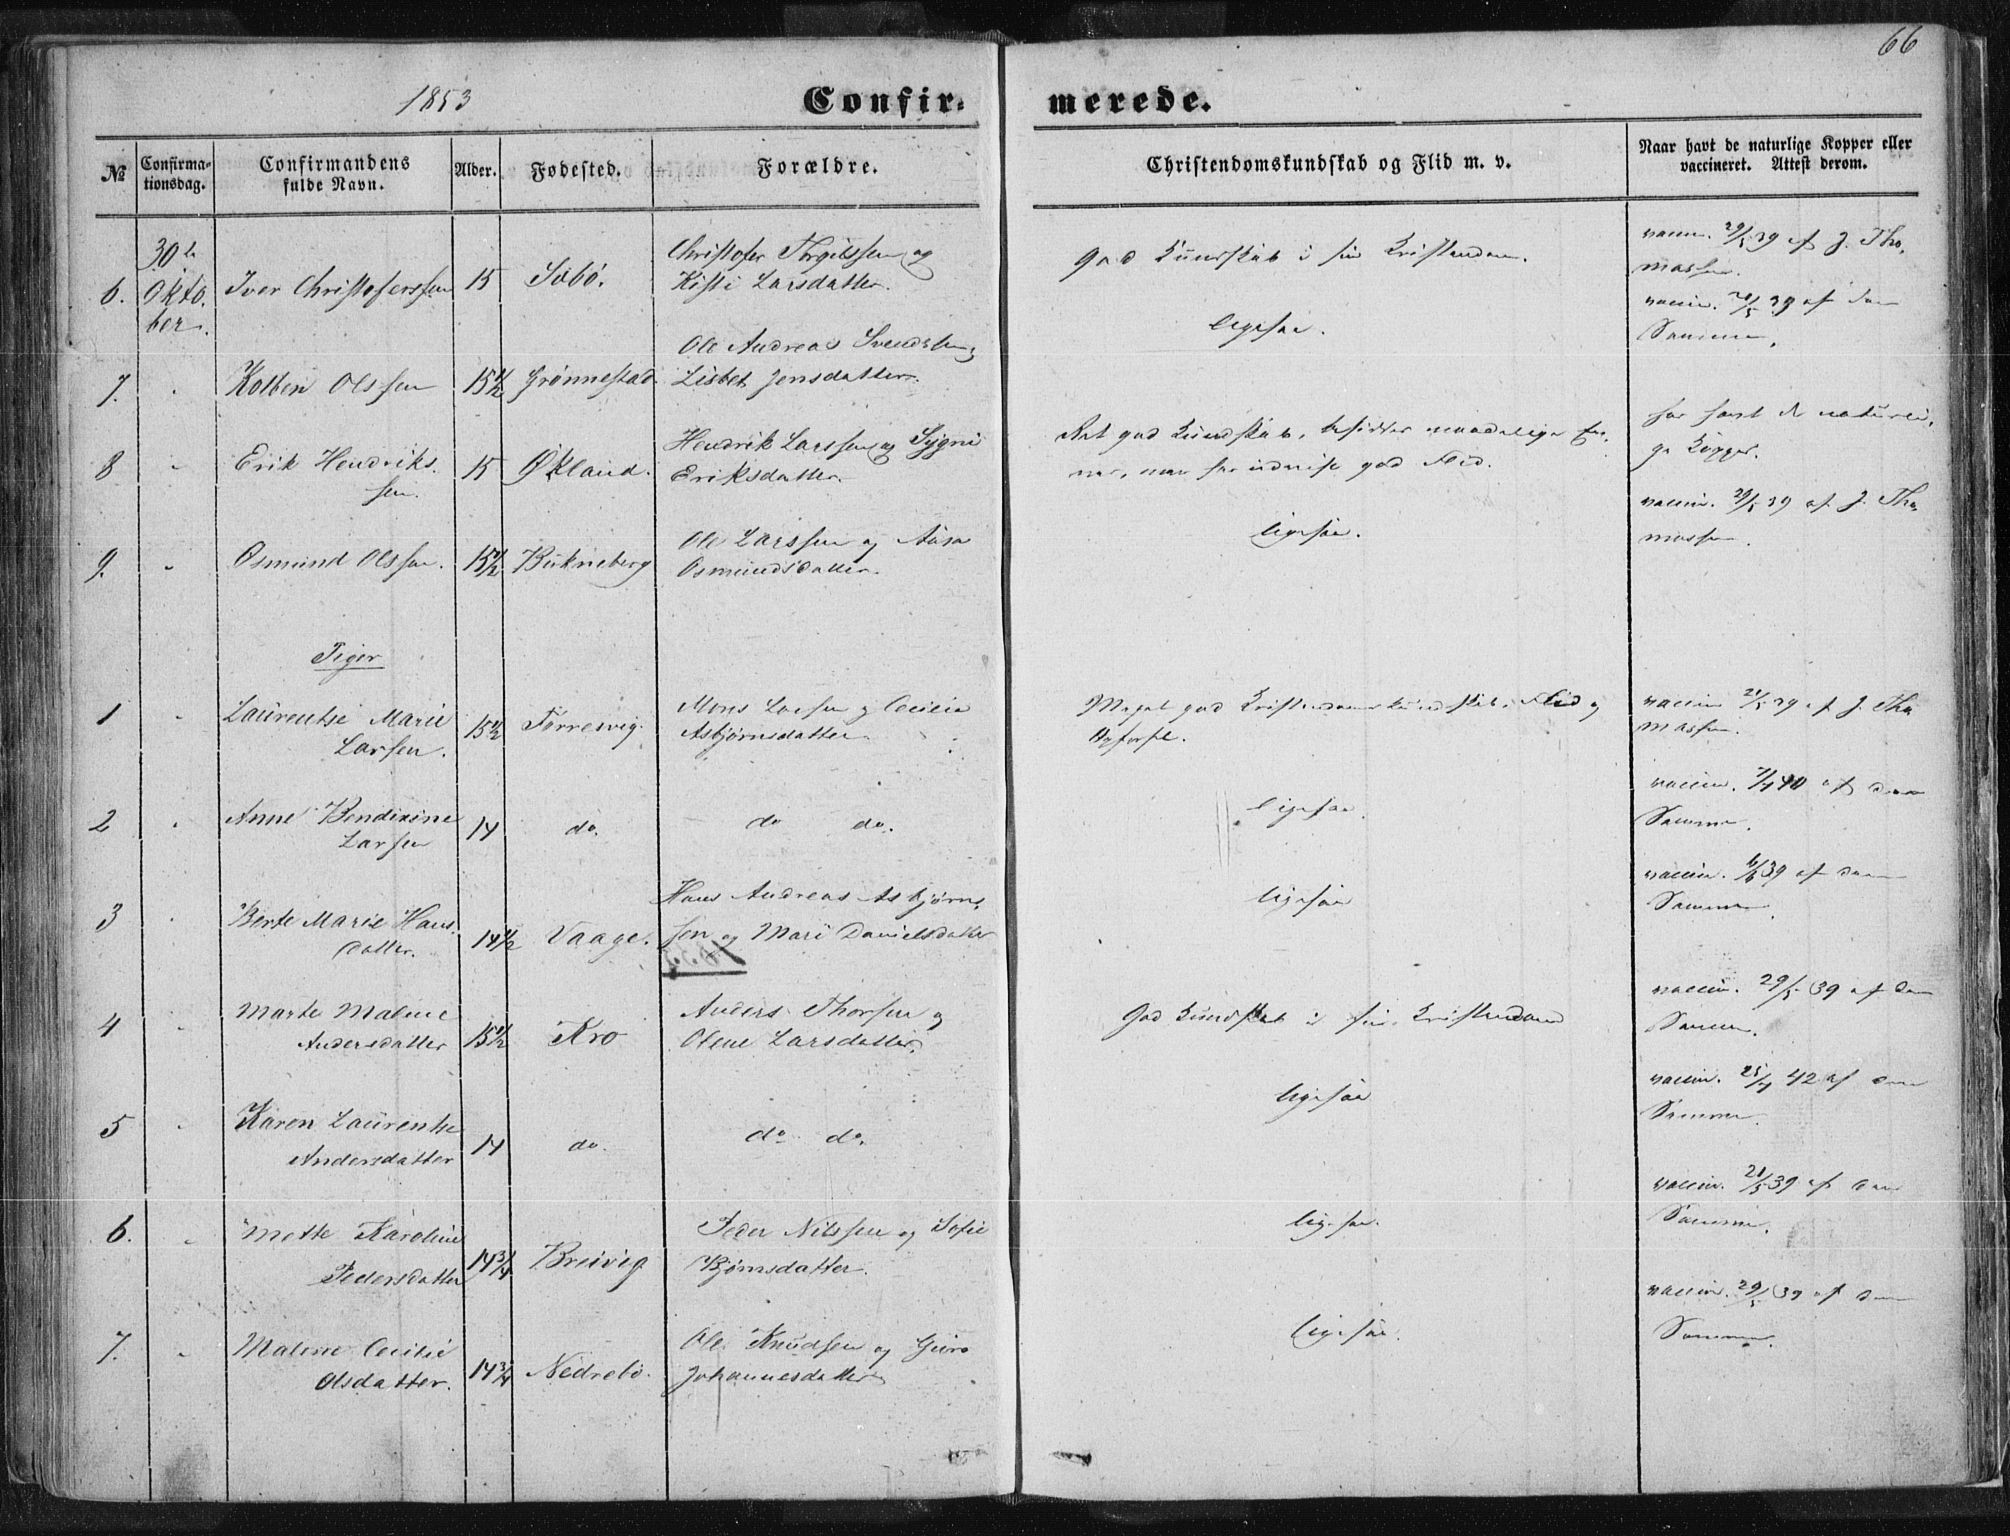 66
1853
Confir-
merede.
№
Confirma-
tionsdag.
Confirmandens
fulde Navn.
Alder.
Fødested.
Forældre.
Christendomskundskab og Flid m. v.
Naar havt de naturlige Kopper eller
vaccineret. Attest derom.
6.
30te
Okto-
ber.
Iver Christofersen
15
Søbö.
Christofer Torgilssen og
Kisti Larsdatter.
God Kundskab i sin Kristendom.
vaccin. 29/5 39 af J. Tho-
massen.
7.
Kolben Olssen
15 1/2
Grønnestad.
Ole Andreas Svendsen og
Lisbet Jensdatter.
ligesaa.
vaccin. 29/5 39 af den
Samme.
8
Erik Hendriks-
sen.
15
Økland.
Hendrik Larssen og Sygni
Eriksdatter.
Ret god Kundskab, besidder maadelige Ev-
ner, men har udvist god Flid.
har havt de naturli-
ge Kopper.
9.
Osmund Olssen.
15 1/2
Birkneberg
Ole Larssen og Aasa
Osmundsdatter.
ligesaa.
vaccin. 29/5 39 af J. Tho-
massen.
Piger
1
Laurentse Marie
Larsen.
15 1/2
Torresvig.
Mons Larsen og Cecilie
Asbjørnsdatter.
Meget god Kristendomskundskab, Flid og
Opførsel.
vaccin 21/5 39 af J. Tho-
massen.
2
Anne Bendixine
Larsen
14
do.
do do.
ligesaa.
vaccin. 7/7 40 af den
Samme.
3
Berte Marie Hans-
datter.
14 1/2
Vaage.
Hans Andreas Asbjørn-
sen og Mari Danielsdatter
ligesaa
vaccin. 6/6 39 af den
Samme.
4
Marte Malene
Andersdatter
15 1/2
Kro
Anders Thorsen og
Olene Larsdatter.
God Kundskab i sin Kristendom
vaccin. 29/5 39 af den
Samme.
5
Karen Laurentse
Andersdatter
14
do.
do do.
ligesaa
vaccin. 25/7 42 af den
Samme.
6.
Mette Karoline
Pedersdatter
14 3/4
Breivig
Peder Nilssen og Sofie
Bjørnsdatter.
ligesaa.
vaccin. 21/5 39 af den
Samme.
7.
Malene Cecilie
Olsdatter.
14 3/4
Nedrebö.
Ole Knudsen og Guro
Johannesdatter
ligesaa.
vaccin. 29/5 39 af den
Samme.